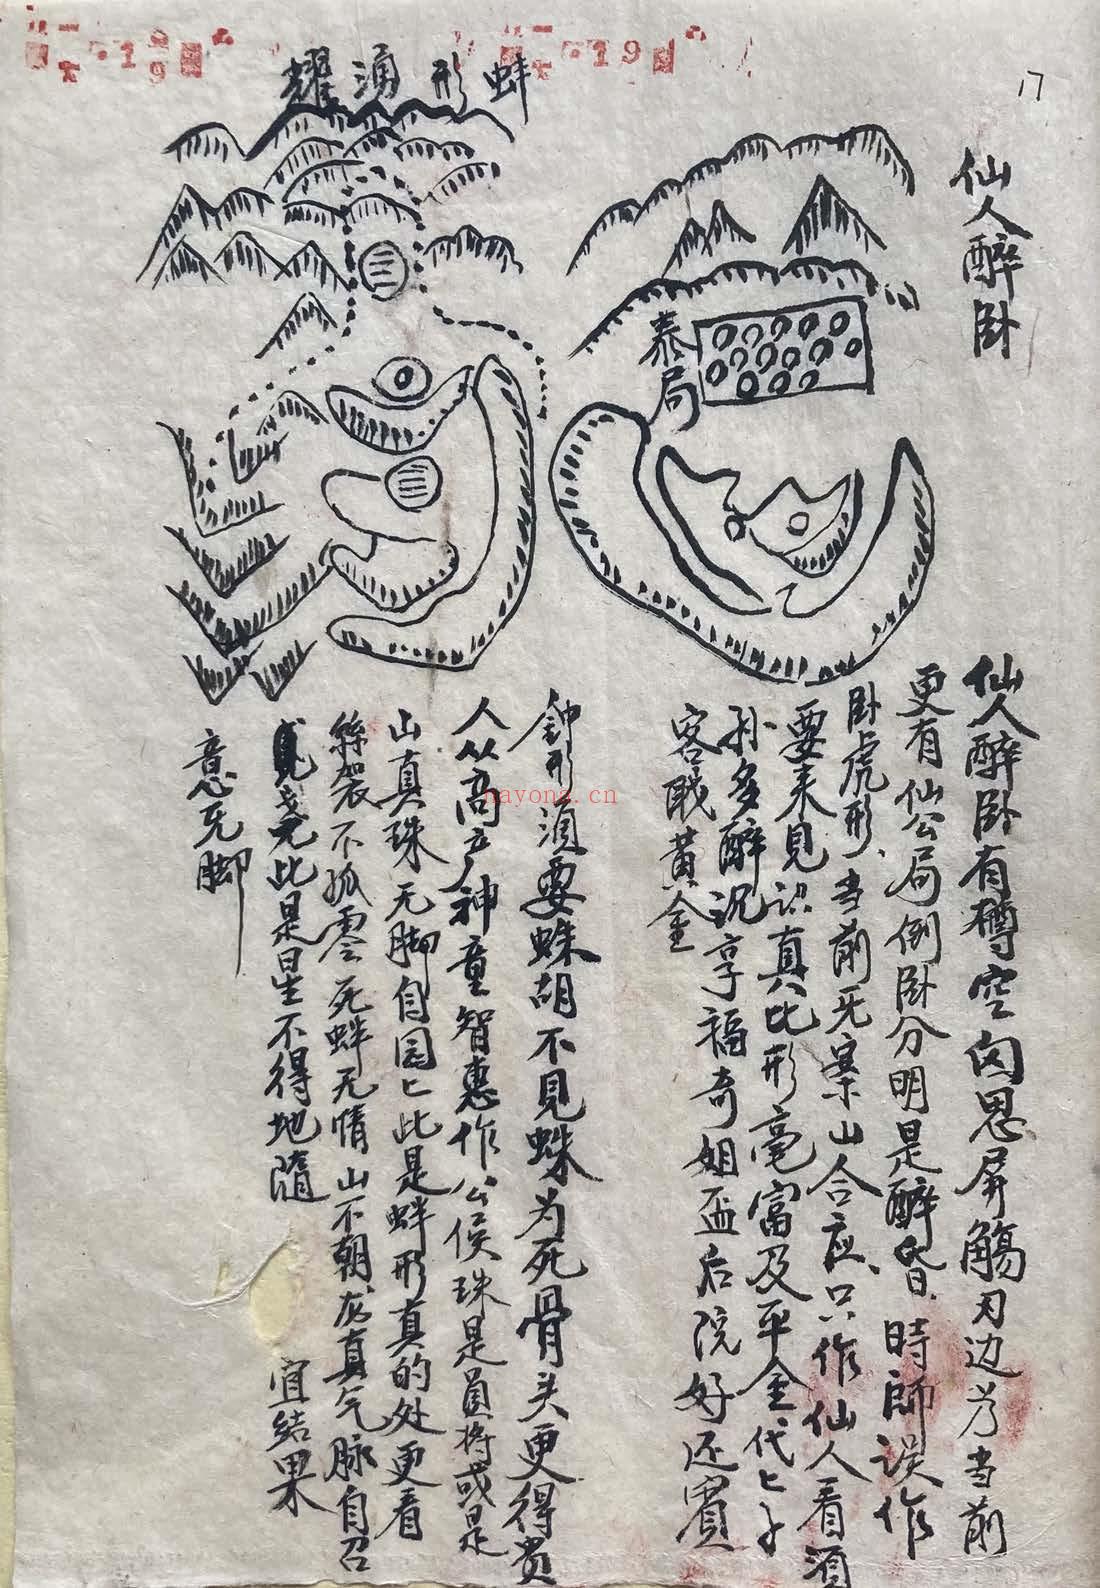 17
仙人醉卧
泰局
仙人醉卧有樽空
恩屏觴
边
当前
更有仙公局倒卧分明是醉昏時師误作
卧虎形当前无案山合应只作仙人看酒
要来見识真比形毫富及平金代匕子
孙多醉沉享福奇姐盃后院好还賓
客戝黃金
蚌形湧耀
鉀形須要蛛胡不見蛛为死骨头更得贵
人从高立神童智惠作公侯珠是圓将或是
山真珠无脚自园匕此是蚌形真的处更看
絲袈不孤零死蚌无情山不朝龙真气脉自召
堯此是星不得地隨
宜结果
意无脚
nayona.cn
19
19